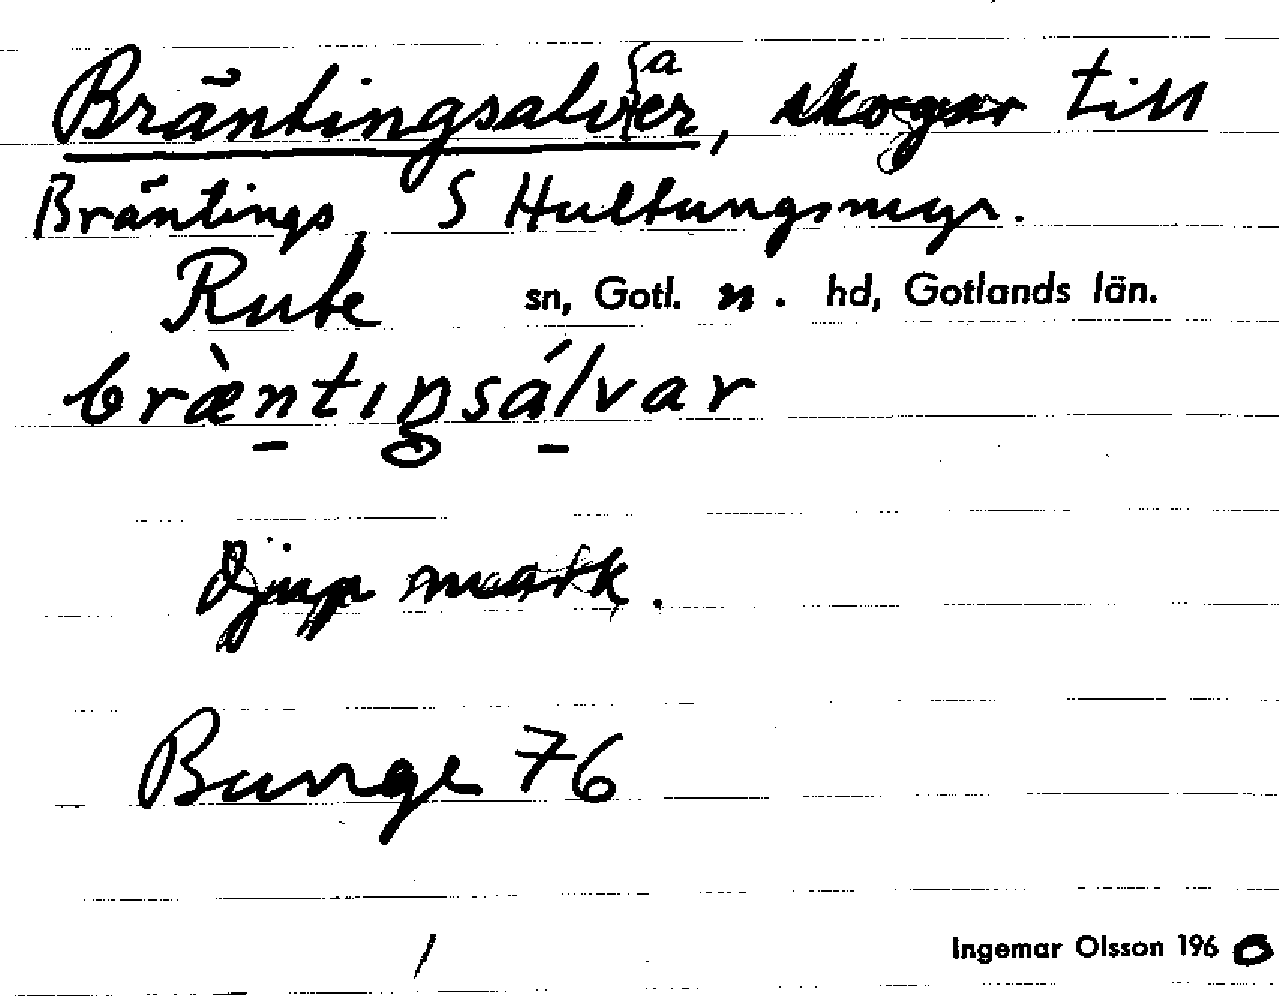 Bräntingsalvꞌer, skogar till
a
Bräntings, S Hultungsmyr.
Rute sn, Gotl. n. hd, Gotlands län.
bræ̀ntıŋsálvar
Djup mark.
Bunge 76
/
Ingemar Olsson 1960